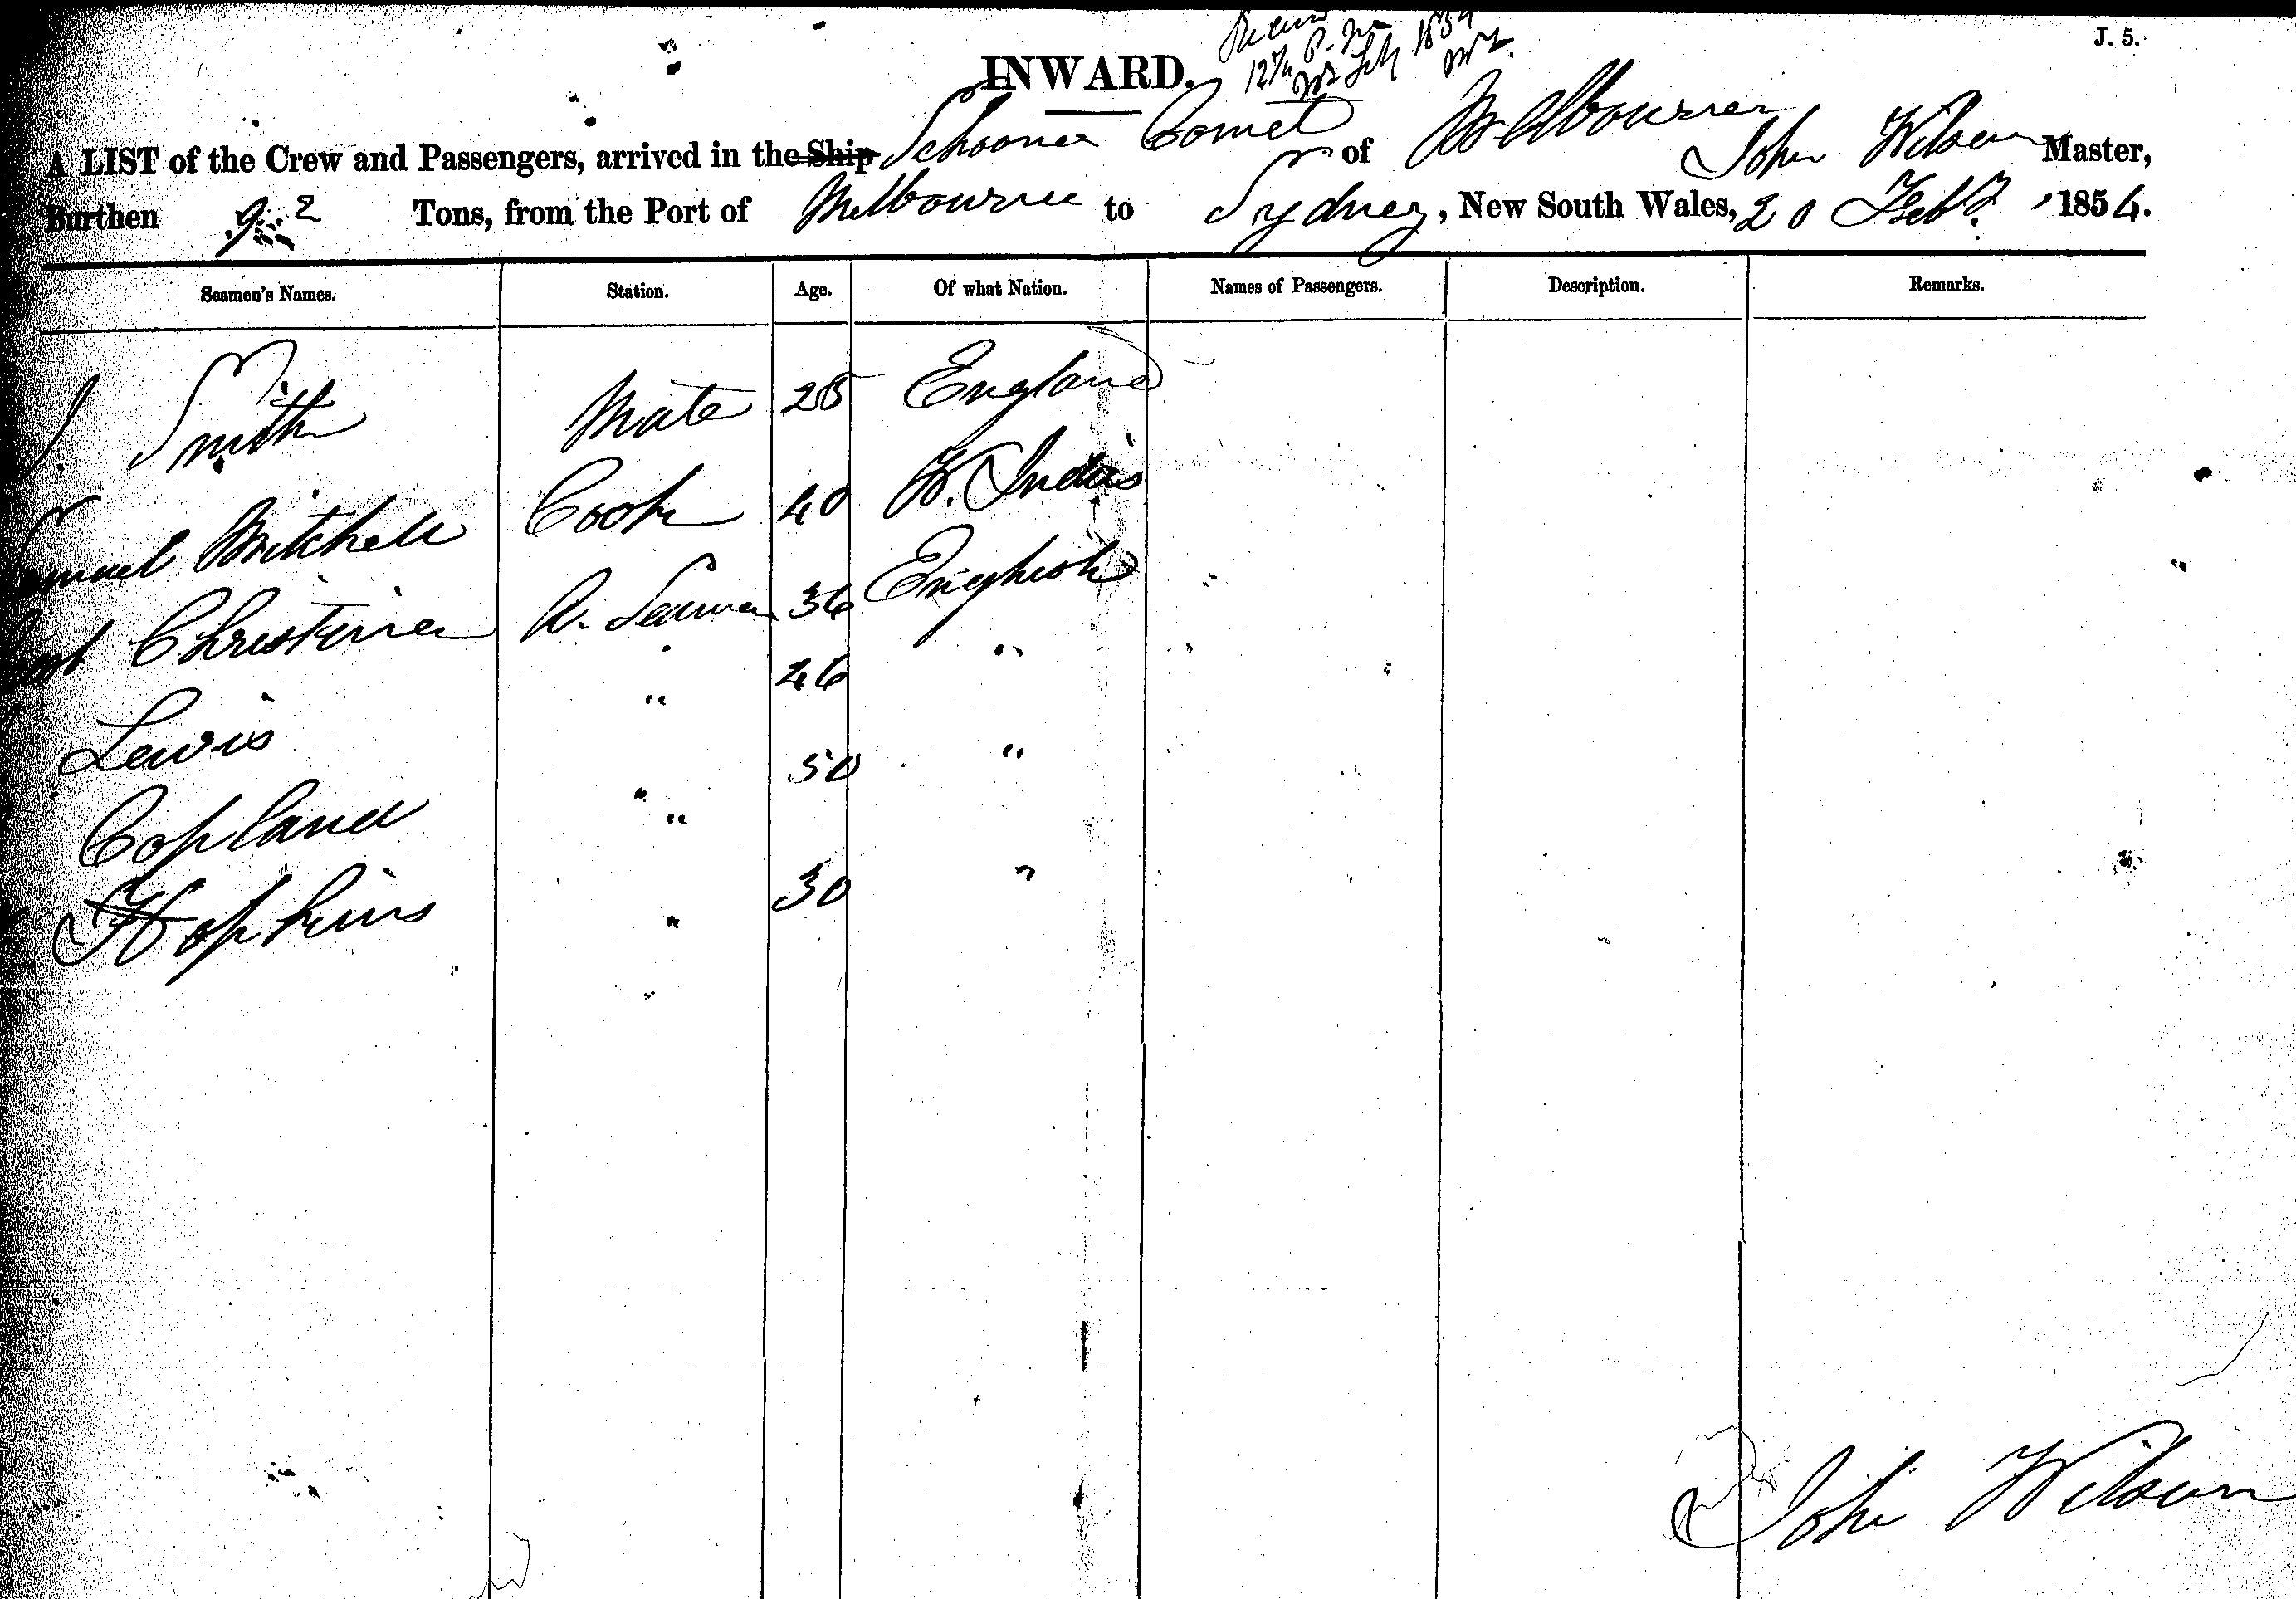 J. 5.
12th P. M 1854
INWARD.
A LIST of the Crew and Passengers, arrived in the Ship Schooner Comet of Melbourne John Wilson Master,
Burthen 92 Tons, from the Port of Melbourne to Sydney, New South Wales, 20 Feby 1854.
Seamen's Names. Station. Age. Of what Nation. Names of Passengers. Description. Remarks.
J. Smith Mate 28 England
Samuel Mitchell Cook 40 W. Indies
Christina A. Seaman 36 English
Lewis " 46 "
Copland " 50 "
Hopkins " 30 "
John Wilson